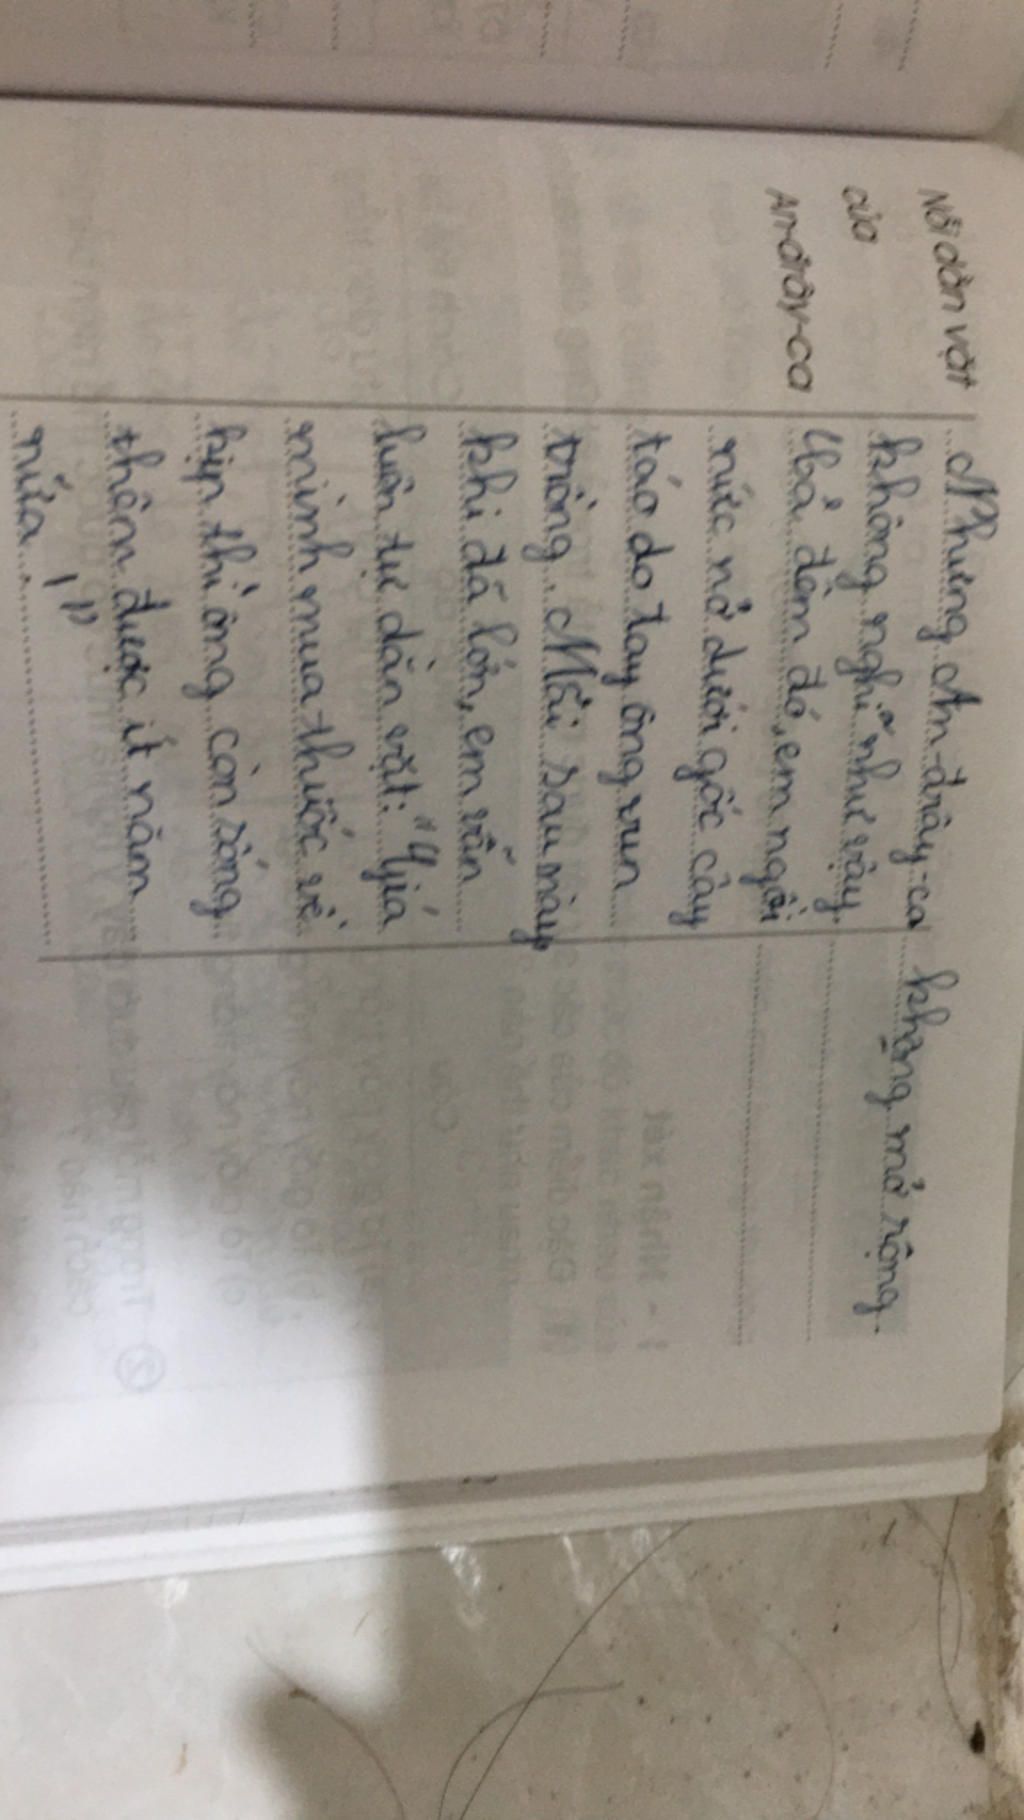 Nỗi dằn vặt
của
An-đrây-ca
Nhưng An-đrây-ca
không nghĩ như vậy.
Cả đêm đó, em ngồi
nức nở dưới gốc cây
táo do tay ông vun
trồng. Mãi sau này,
khi đã lớn, em vẫn
luôn tự dằn vặt: "Giá
mình mua thuốc về
kịp thì ông còn sống
thêm được ít năm
nữa!"
không mở rộng.